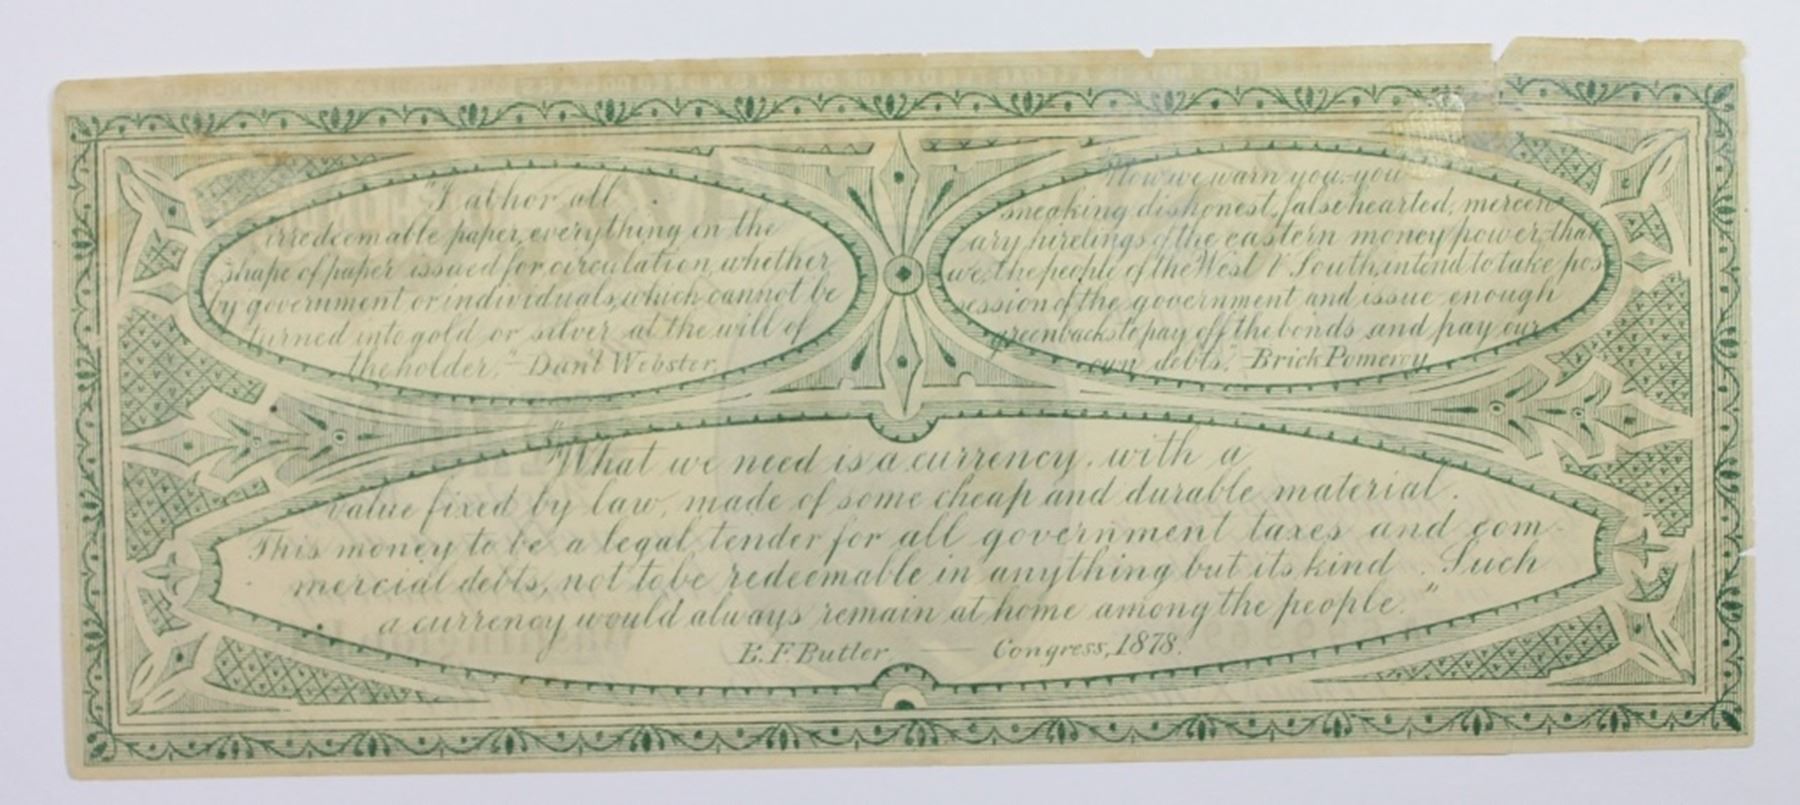 "I abhor all
irredeemable paper, everything in the
shape of paper issued for circulation, whether
by government or individuals, which cannot be
turned into gold or silver at the will of
the holder," - Dan'l Webster.
"Now we warn you, you
sneaking dishonest, false hearted, mercen
ary hirelings of the eastern money power, that
we, the people of the West & South, intend to take pos
session of the government and issue enough
greenbacks to pay off the bonds and pay our
own debts," - Brick Pomeroy
"What we need is a currency, with a
value fixed by law, made of some cheap and durable material.
This money to be a legal tender for all government taxes and com-
mercial debts, not to be redeemable in anything but its kind. Such
a currency would always remain at home among the people."
B. F. Butler, — Congress, 1878.